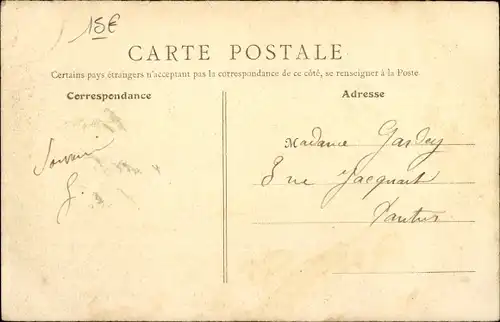 15€
CARTE POSTALE
Certains pays étrangers n'acceptant pas la correspondance de ce côté, se renseigner à la Poste
Correspondance
Adresse
Souvenir
Madame Gardey
8 rue Jacquart
Pantin